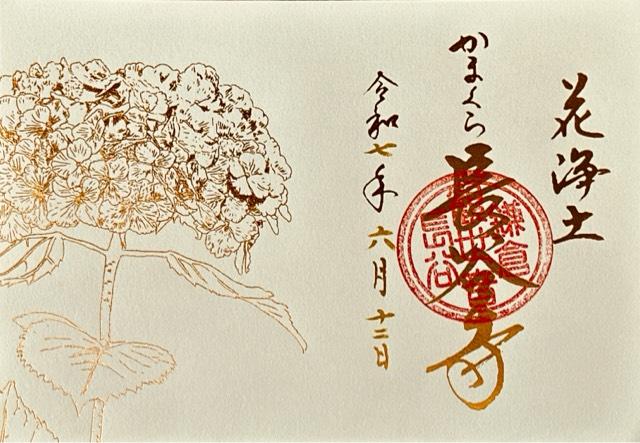 花浄土
かまくら
長谷寺
令和七年六月十二日
鎌倉